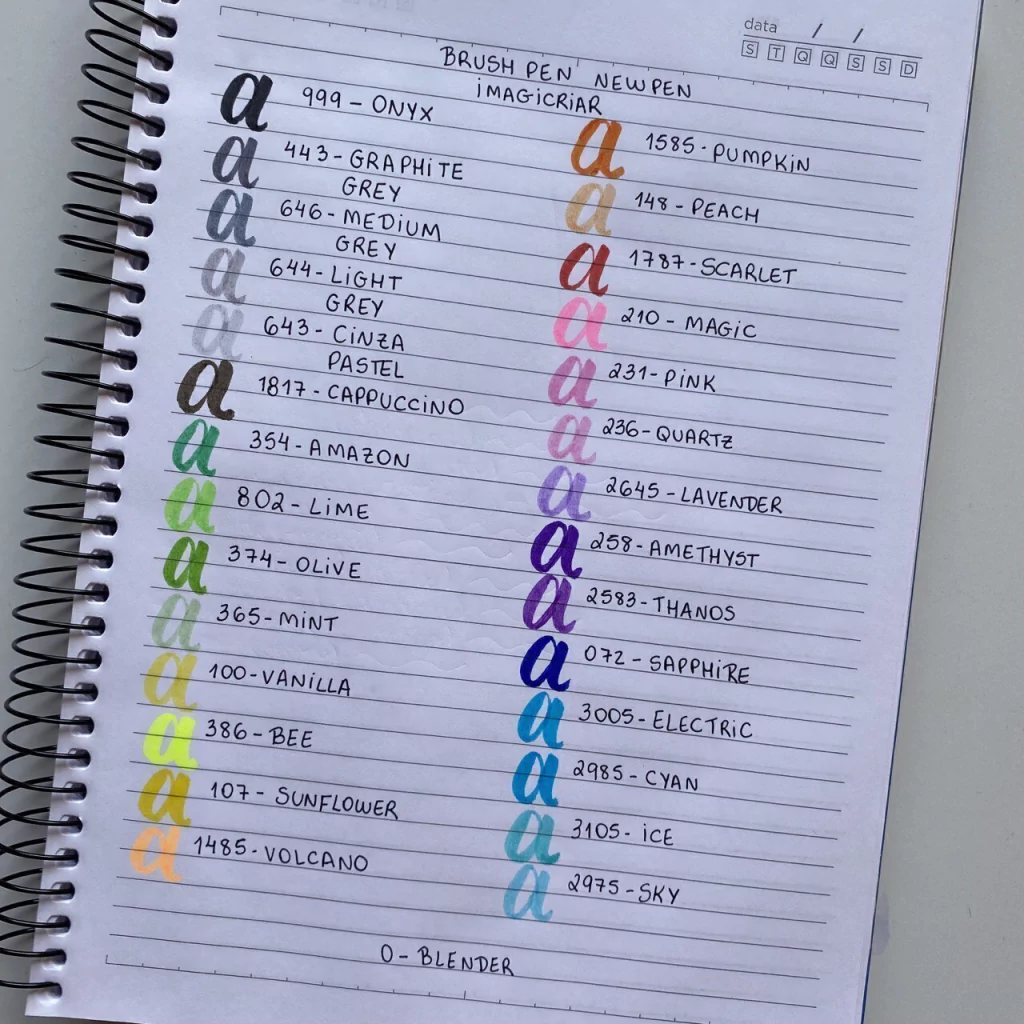 data / /
S T Q Q S S D
BRUSH PEN NEWPEN
iMAGICRiAR
a 999 - ONYX
a 443 - GRAPHiTE
GREY
a 646 - MEDiUM
GREY
a 644 - LiGHT
GREY
a 643 - CiNZA
PASTEL
a 1817 - CAPPUCCiNO
a 354 - AMAZON
a 802 - LiME
a 374 - OLiVE
a 365 - MiNT
a 100 - VANiLLA
a 386 - BEE
a 107 - SUNFLOWER
a 1485 - VOLCANO
a 1585 - PUMPKiN
a 148 - PEACH
a 1787 - SCARLET
a 210 - MAGiC
a 231 - PiNK
a 236 - QUARTZ
a 2645 - LAVENDER
a 258 - AMETHYST
a 2583 - THANOS
a 072 - SAPPHiRE
a 3005 - ELECTRiC
a 2985 - CYAN
a 3105 - iCE
a 2975 - SKY
0 - BLENDER